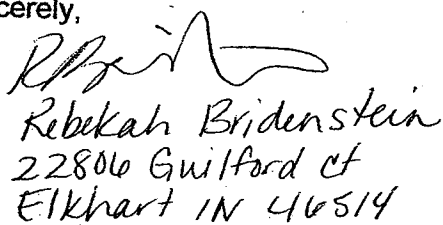 cerely,
Rebekah Bridenstein
22806 Guilford ct
Elkhart IN 46514